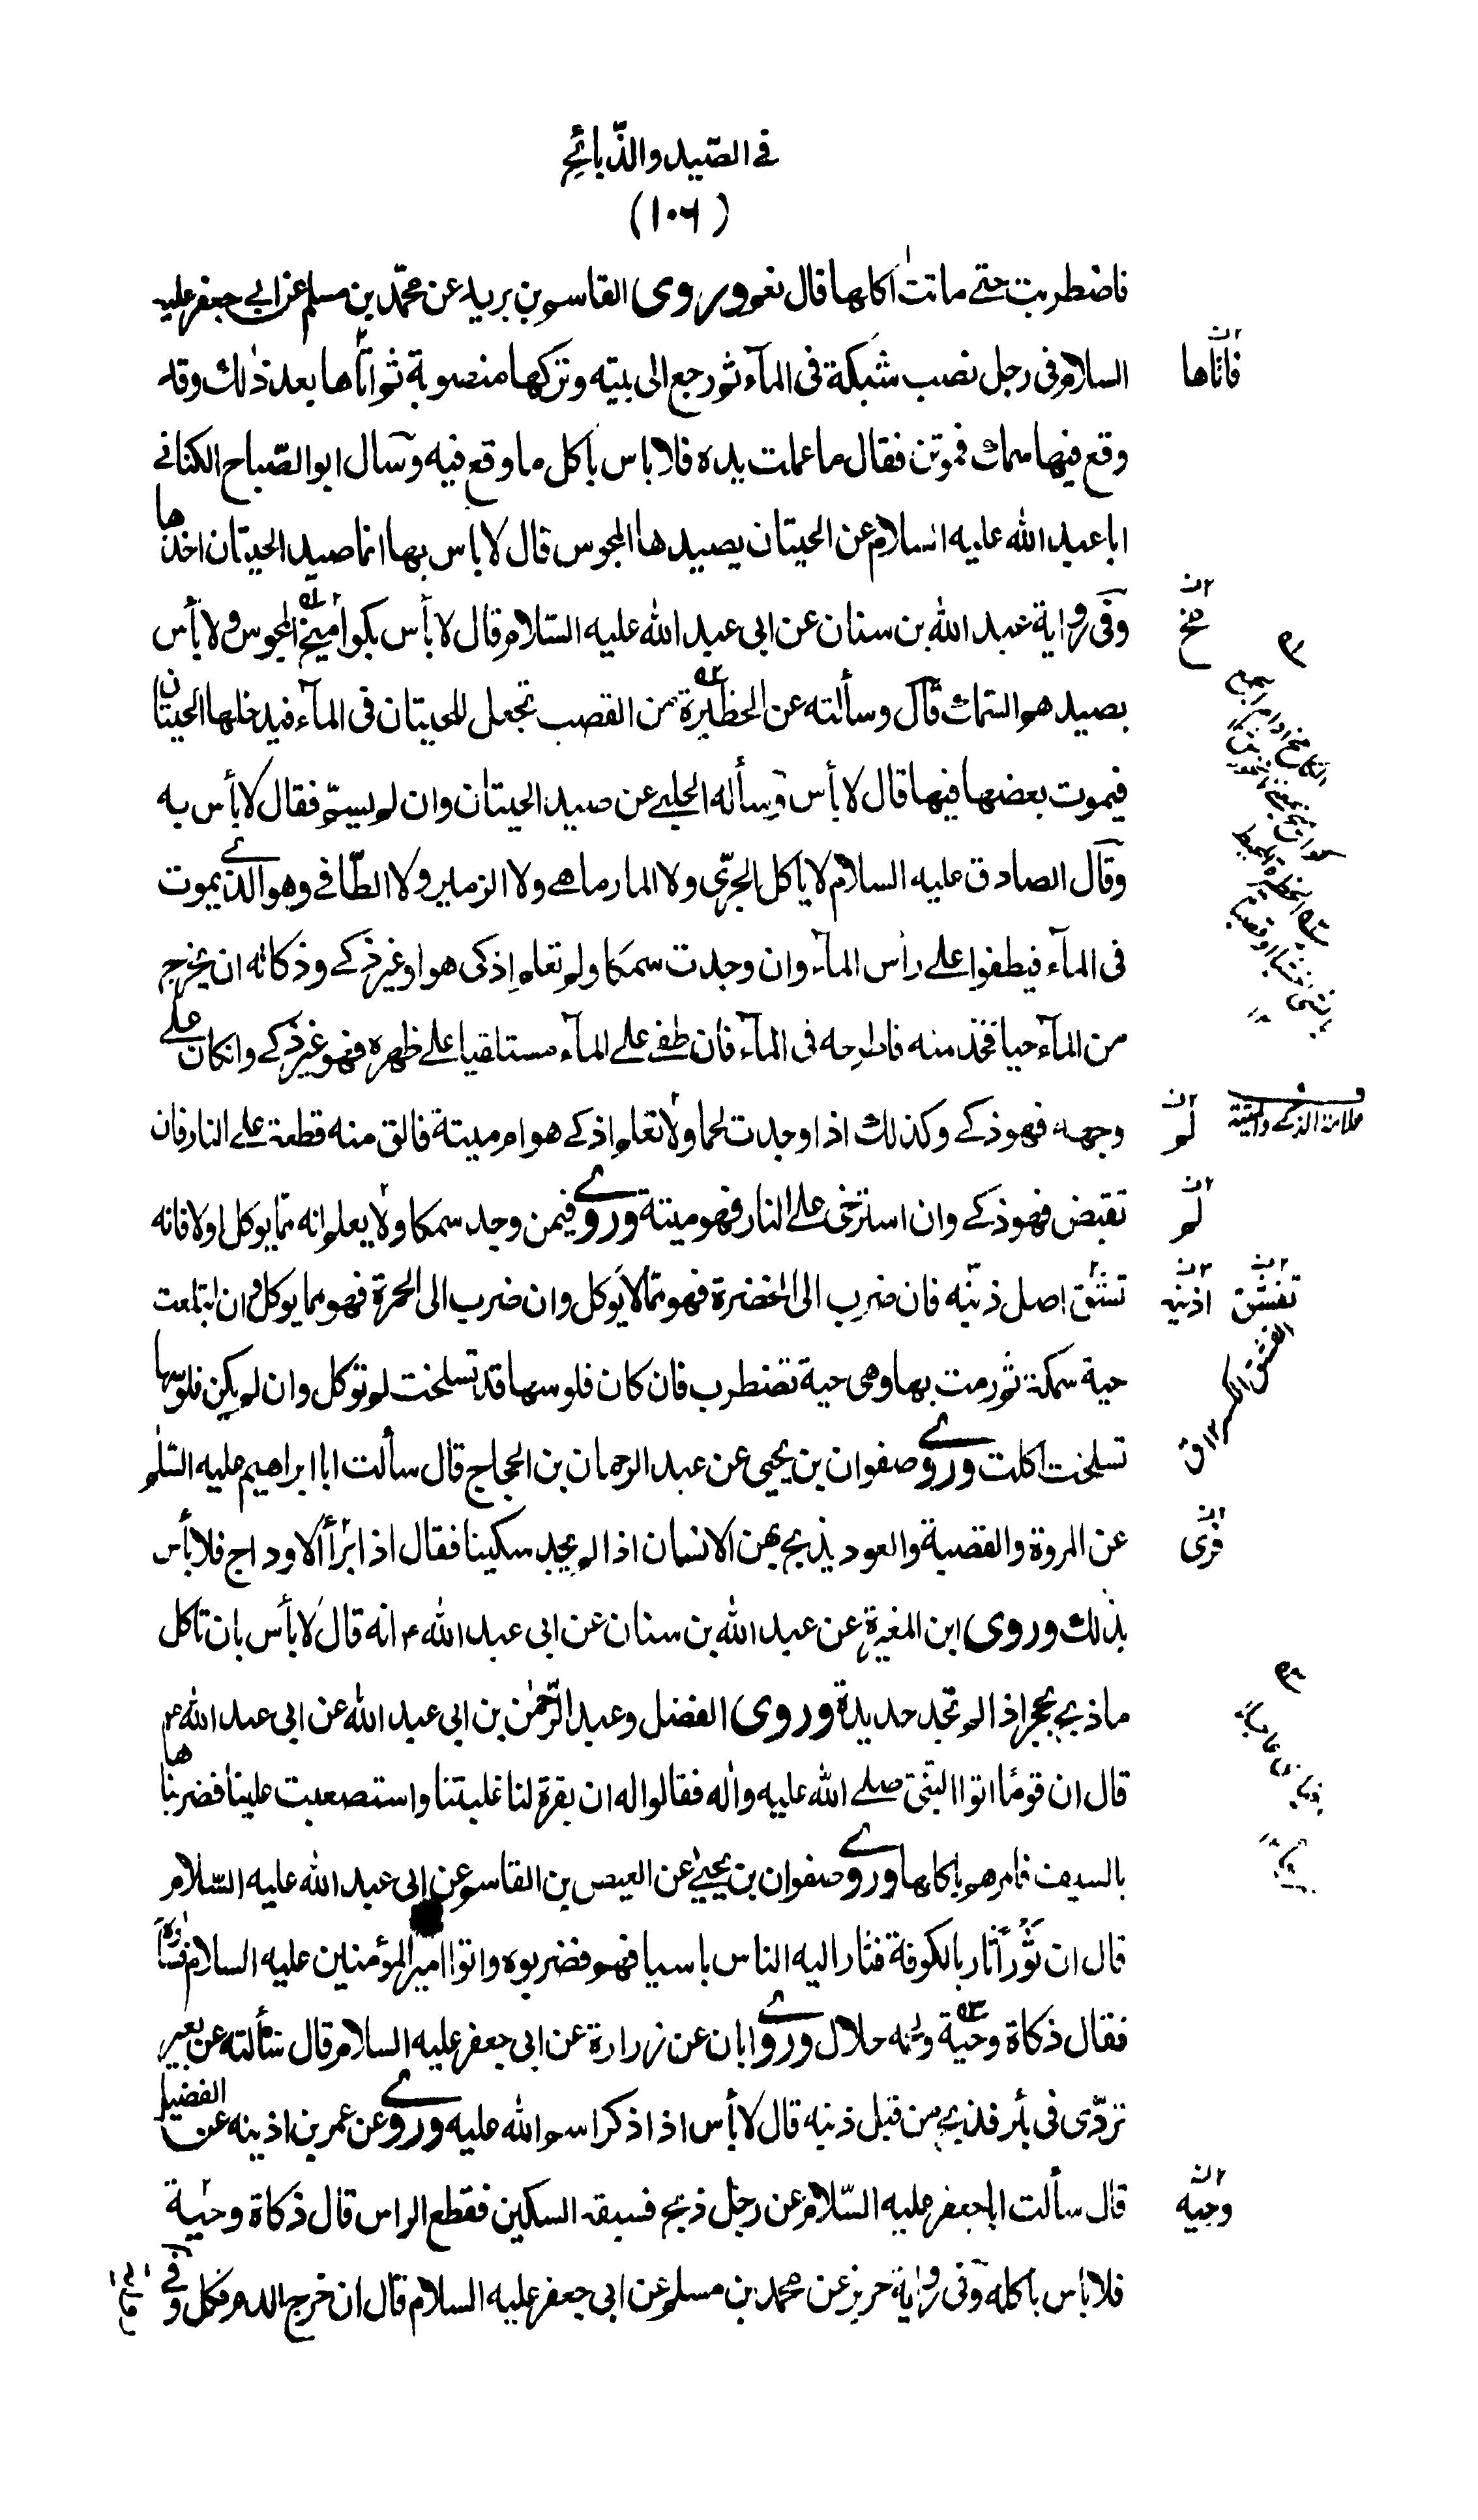 في الصّيد والذّبائح
(١٠٦)
فاضطربت حتى ماتت اكلها قال نعم وروى القاسم بن بريد عن محمّد بن مسلم عن ابي جعفر عليه
السلام في رجل نصب شبكة في المآء ثم رجع الى بيته وتركها منصوبة ثم اتاها بعد ذلك وقد
فاتاها
وقع فيها سمك فموتن فقال ما عملت يده فلا باس باكل ما وقع فيه وسأل ابو الصّباح الكناني
ابا عبد الله عليه السلام عن الحيتان يصيدها المجوس قال لا بأس بها انما صيد الحيتان اخذها
وفي رواية عبد الله بن سنان عن ابي عبد الله عليه السّلام قال لا بأس بكواميخ المجوس ولا بأس
مخ
بصيدهم السّمك قال وسألته عن الحظيرة من القصب تجعل للحيتان في المآء فيدخلها الحيتان
فيموت بعضها فيها قال لا بأس وسأله الحلبي عن صيد الحيتان وان لم يسمّ فقال لا بأس به
وقال الصادق عليه السلام لا يأكل الجرّي ولا المارماهي ولا الزمير ولا الطّافي وهو الذي يموت
في المآء فيطفوا على رأس المآء وان وجدت سمكا ولم تعلم اذكى هو او غير ذكي وذكاته ان يخرج
من المآء حيا فخذ منه فاطرحه في المآء فان طفى على المآء مستلقيا على ظهره فهو غير ذكي وانكان على
وجهه فهو ذكي وكذلك اذا وجدت لحما ولا تعلم اذكي هو ام ميتة فالق منه قطعة على النار فان
لم
علامة الذكي والميتة
تقبض فهو ذكي وان استرخى على النار فهو ميتة وروي فيمن وجد سمكا ولا يعلم انه مما يوكل او لا فانه
لم
تشق اصل ذنبه فان ضرب الى الخضرة فهو ممّا لا يوكل وان ضرب الى الحمرة فهو مما يوكل وان ابتلعت
اذنيه
تفشق
حية سمكة ثم رمت بها وهي حية تضطرب فان كان فلوسها قد تسلخت لم توكل وان لم يكن فلوسها
تسلخت اكلت وروي صفوان بن يحيى عن عبد الرحمان بن الحجاج قال سألت ابا ابراهيم عليه السّلم
عن المروة والقصبة والعود يذبح بهن الانسان اذا لم يجد سكينا فقال اذا برأ الاوداج فلا بأس
فرى
بذلك وروى ابن المغيرة عن عبد الله بن سنان عن ابي عبد الله ع انه قال لا بأس بان تاكل
ما ذبح بحجر اذا لم تجد حديدة وروى الفضل وعبد الرّحمن بن ابي عبد الله عن ابي عبد الله ع
قال ان قومًا اتوا النبيّ صلى الله عليه واله فقالوا له ان بقرة لنا غلبتنا واستصعبت علينا فضربناها
بالسيف فامرهم باكلها وروي صفوان بن يحيى عن العيص بن القاسم عن ابي عبد الله عليه السّلام
قال ان ثورًا ثار بالكوفة فثار اليه الناس باسيافهم فضربوه واتوا امير المؤمنين عليه السلام فسألوه
فقال ذكاة وحيّة ولحمه حلال وروي ابان عن زرارة عن ابي جعفر عليه السلام قال سألته عن بعير
تردّى في بئر فذبح من قبل ذنبه قال لا بأس اذا ذكر اسم الله عليه وروي عن عمر بن اذينه عن الفضيل
قال سألت ابا جعفر عليه السّلام عن رجل ذبح فسبقه السكين فقطع الراس قال ذكاة وحية
وجيه
فلا باس باكله وفي رواية حريز عن محمد بن مسلم عن ابي جعفر عليه السلام قال ان خرج الدم فكل وفي